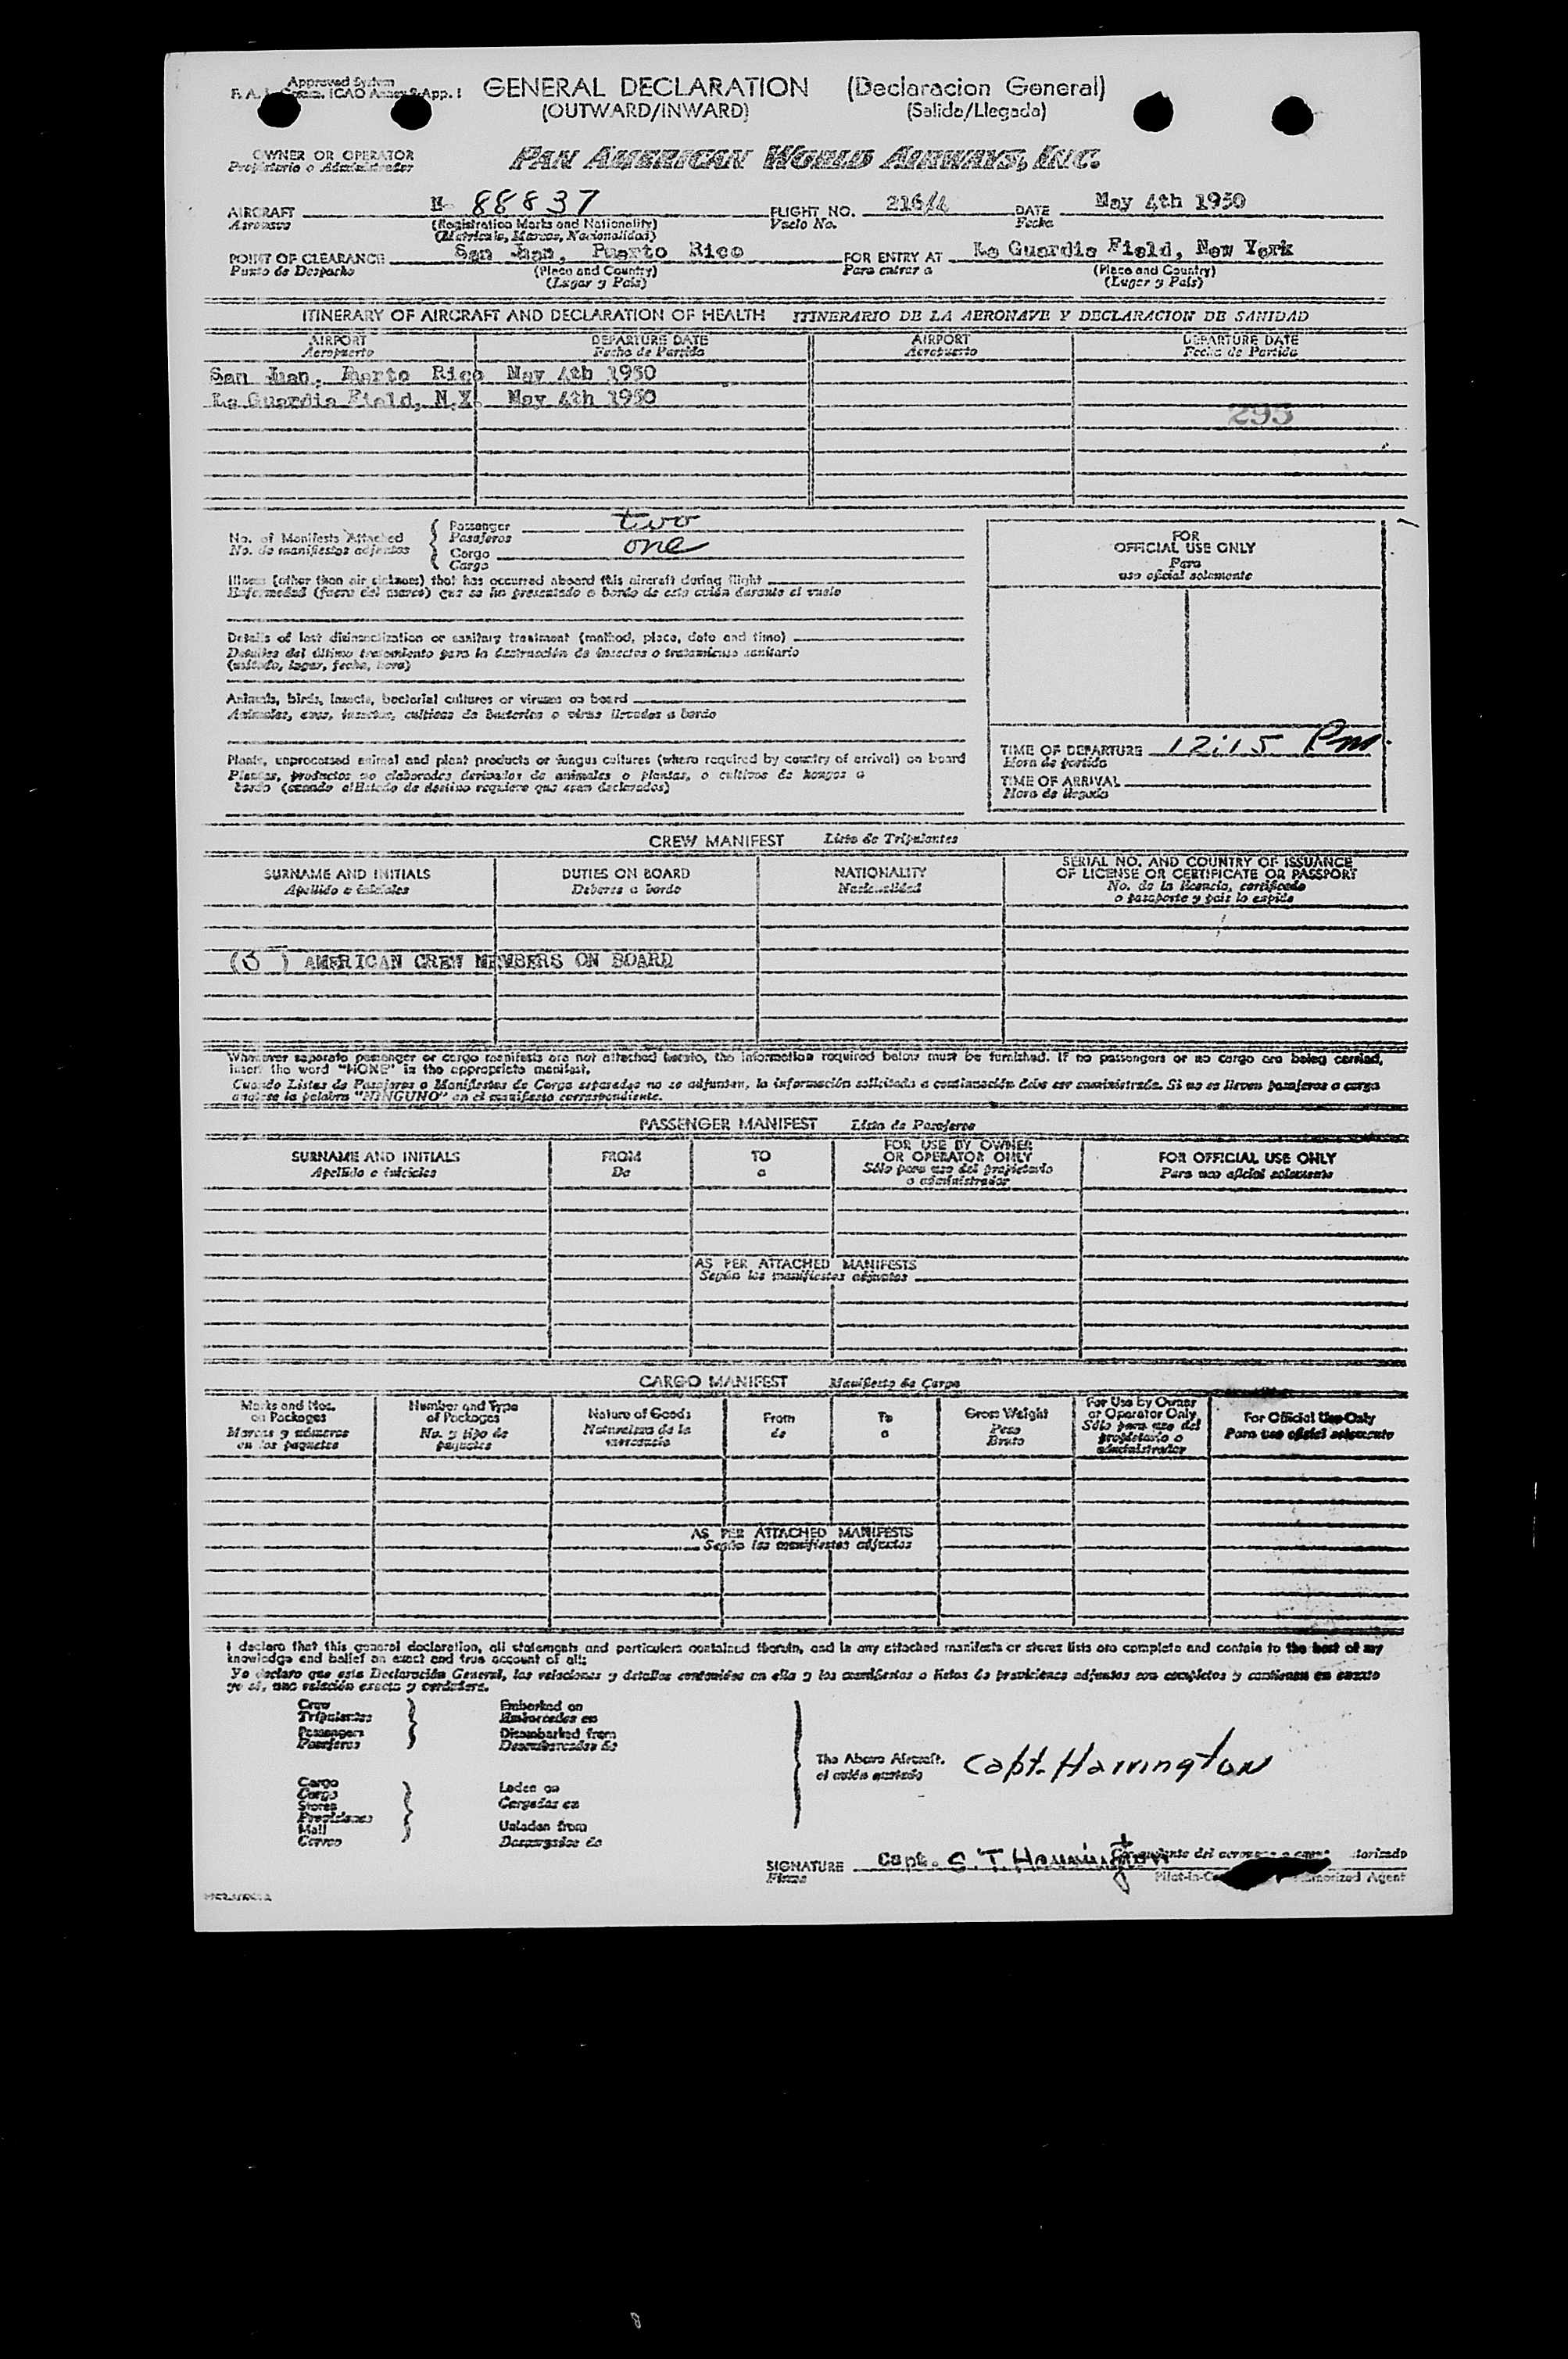 Approved System
F. A. L. Comm. ICAO Annex 9 App. 1
GENERAL DECLARATION (Declaracion General)
(OUTWARD/INWARD) (Salida/Llegada)
OWNER OR OPERATOR
Propietario o Administrador
PAN AMERICAN WORLD AIRWAYS, INC.
AIRCRAFT N- 88837 FLIGHT NO. 216/4 DATE May 4th 1950
Aeronave (Registration Marks and Nationality) Vuelo No. Fecha
(Matricula, Marcas, Nacionalidad)
POINT OF CLEARANCE San Juan, Puerto Rico FOR ENTRY AT La Guardia Field, New York
Punto de Despacho (Place and Country) Para entrar a (Place and Country)
(Lugar y País) (Lugar y País)
ITINERARY OF AIRCRAFT AND DECLARATION OF HEALTH ITINERARIO DE LA AERONAVE Y DECLARACION DE SANIDAD
AIRPORT DEPARTURE DATE AIRPORT DEPARTURE DATE
Aeropuerto Fecha de Partida Aeropuerto Fecha de Partida
San Juan, Puerto Rico May 4th 1950
La Guardia Field, N.Y. May 4th 1950
295
No. of Manifests Attached
No. de manifiestos adjuntos
Passenger two
Pasajeros
Cargo one
Cargo
Illness (other than air sickness) that has occurred aboard this aircraft during flight
Enfermedad (fuera del mareo) que se ha presentado a bordo de este avión durante el vuelo
Details of last disinsectization or sanitary treatment (method, place, date and time)
Detalles del último tratamiento para la destrucción de insectos o tratamiento sanitario
(método, lugar, fecha, hora)
Animals, birds, insects, bacterial cultures or viruses on board
Animales, aves, insectos, cultivos de bacterias o virus llevados a bordo
Plants, unprocessed animal and plant products or fungus cultures (where required by country of arrival) on board
Plantas, productos no elaborados derivados de animales o plantas, o cultivos de hongos a
bordo (cuando el Estado de destino requiere que sean declarados)
FOR
OFFICIAL USE ONLY
Para
uso oficial solamente
TIME OF DEPARTURE 12:15 Pm.
Hora de partida
TIME OF ARRIVAL
Hora de llegada
CREW MANIFEST Lista de Tripulantes
SURNAME AND INITIALS DUTIES ON BOARD NATIONALITY SERIAL NO. AND COUNTRY OF ISSUANCE
OF LICENSE OR CERTIFICATE OR PASSPORT
Apellido e iniciales Deberes a bordo Nacionalidad No. de la licencia, certificado
o pasaporte y país lo expide
( 5 ) AMERICAN CREW MEMBERS ON BOARD
Whenever separate passenger or cargo manifests are not attached hereto, the information required below must be furnished. If no passengers or no cargo are being carried,
insert the word "NONE" in the appropriate manifest.
Cuando Listas de Pasajeros o Manifiestos de Cargo separados no se adjuntan, la información solicitada a continuación debe ser suministrada. Si no se lleven pasajeros o carga
anótese la palabra "NINGUNO" en el manifiesto correspondiente.
PASSENGER MANIFEST Lista de Pasajeros
SURNAME AND INITIALS FROM TO FOR USE BY OWNER
OR OPERATOR ONLY FOR OFFICIAL USE ONLY
Apellido e iniciales De a Sólo para uso del propietario
o administrador Para uso oficial solamente
AS PER ATTACHED MANIFESTS
Según los manifiestos adjuntos
CARGO MANIFEST Manifiesto de Cargo
Marks and Nos.
on Packages
Marcas y números
en los paquetes
Number and Type
of Packages
No. y tipo de
paquetes
Nature of Goods
Naturaleza de la
mercancía
From
de
To
a
Gross Weight
Peso
Bruto
For Use by Owner
or Operator Only
Sólo para uso del
propietario o
administrador
For Official Use Only
Para uso oficial solamente
AS PER ATTACHED MANIFESTS
Según los manifiestos adjuntos
I declare that this general declaration, all statements and particulars contained therein, and in any attached manifests or stores lists are complete and contain to the best of my
knowledge and belief an exact and true account of all:
Yo declaro que esta Declaración General, las relaciones y detalles contenidos en ella y los manifiestos o listas de provisiones adjuntos son completos y contienen en cuanto
yo sé, una relación exacta y verdadera.
Crew
Tripulantes
Passengers
Pasajeros
Embarked on
Embarcados en
Disembarked from
Desembarcados de
Cargo
Cargo
Stores
Provisiones
Mail
Correo
Laden on
Cargados en
Unladen from
Descargados de
The Above Aircraft.
el avión anotado
Capt. Harrington
SIGNATURE Capt. S.T. Harrington
Firma
Pilot-in-Co Authorized Agent
8